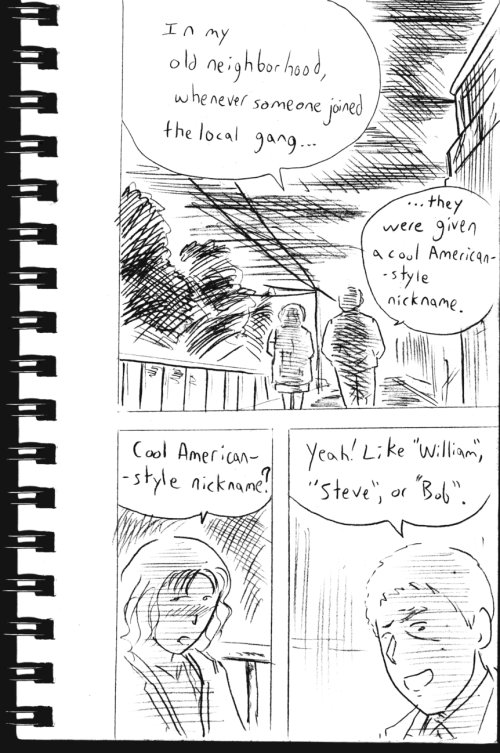 In my
old neighborhood,
whenever someone joined
the local gang...
...they
were given
a cool American-
-style
nickname.
Cool American-
-style nickname?
Yeah! Like "William",
"Steve", or "Bob".